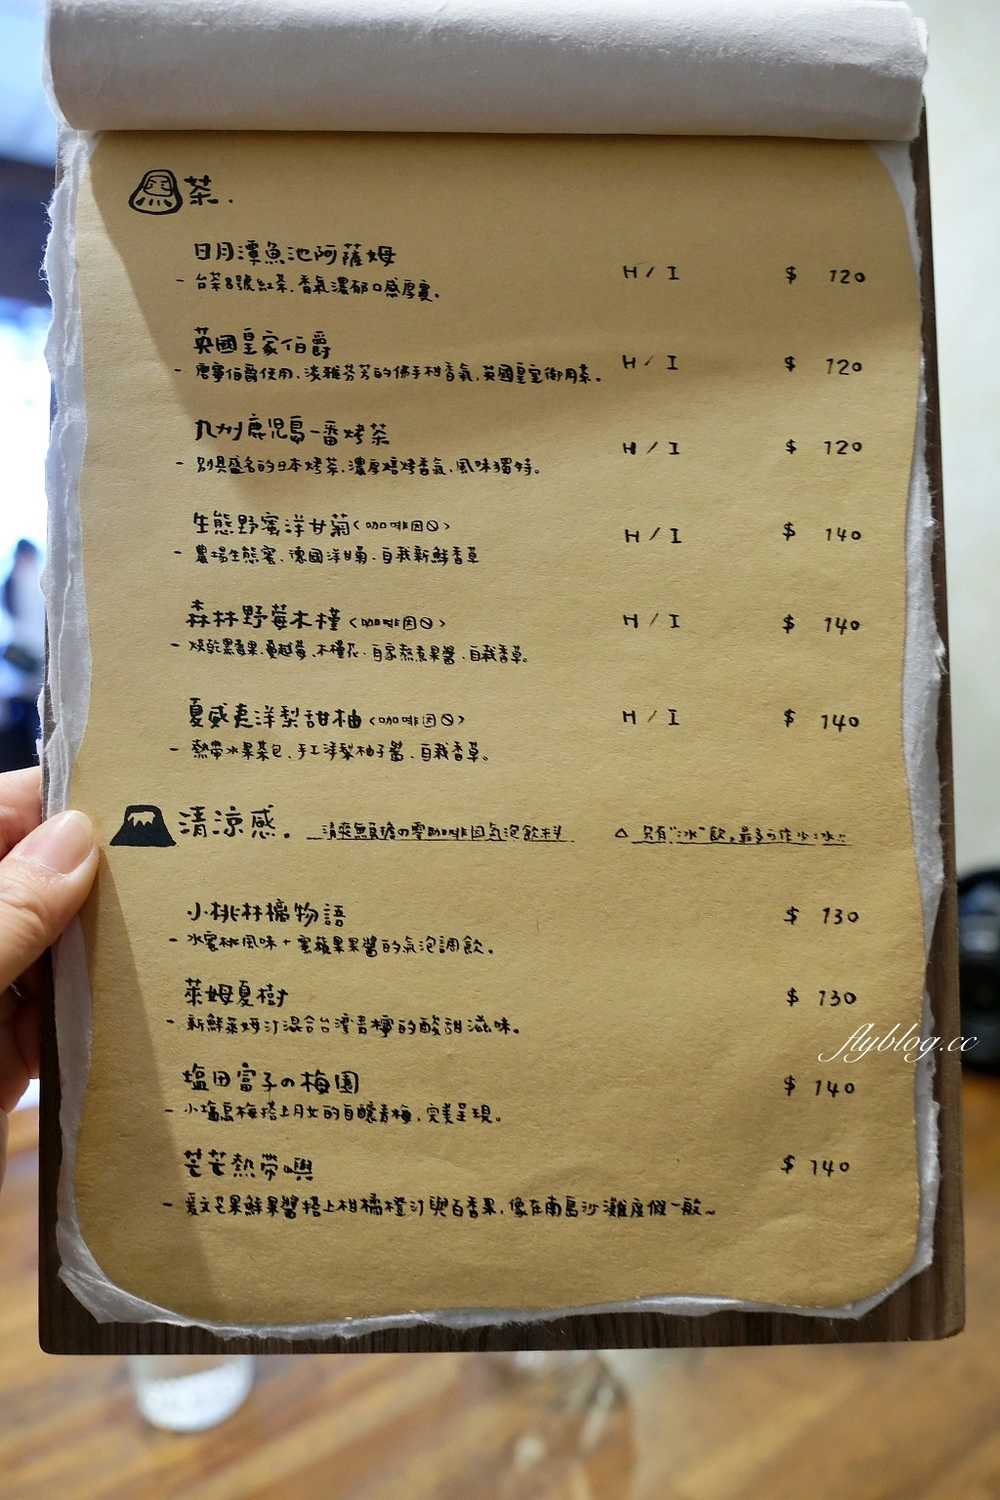 茶.
日月潭魚池阿薩姆 H / I $ 120
- 台茶8號紅茶.香氣濃郁口感厚實。
英國皇家伯爵 H / I $ 120
- 唐寧伯爵使用.淡雅芬芳的佛手柑香氣,英國皇室御用茶。
九州鹿児島一番烤茶 H / I $ 120
- 別具盛名的日本烤茶.濃厚焙烤香氣.風味獨特。
生態野蜜洋甘菊<咖啡因🛇> H / I $ 140
- 農場生態蜜.德國洋甘菊.自栽新鮮香草
森林野莓木槿<咖啡因🛇> H / I $ 140
- 烘乾黑莓果.蔓越莓.木槿花.自家熬煮果醬.自栽香草。
夏威夷洋梨甜柚<咖啡因🛇> H / I $ 140
- 熱帶水果茶包.手工洋梨柚子醬.自栽香草。
清涼感。 清爽無負擔の零咖啡因氣泡飲料 △ 只有"冰"飲,最多可作少冰
小桃林檎物語 $ 130
- 水蜜桃風味+蜜蘋果果醬的氣泡調飲。
萊姆夏樹 $ 130
- 新鮮萊姆汁混合台灣青檸的酸甜滋味。
塩田富子の梅園 $ 140
- 小塩烏梅搭上月女的自釀青梅,完美呈現。
芒芒熱帶嶼 $ 140
- 愛文芒果鮮果醬搭上柑橘橙汁與百香果,像在南島沙灘度假一般~
flyblog.cc